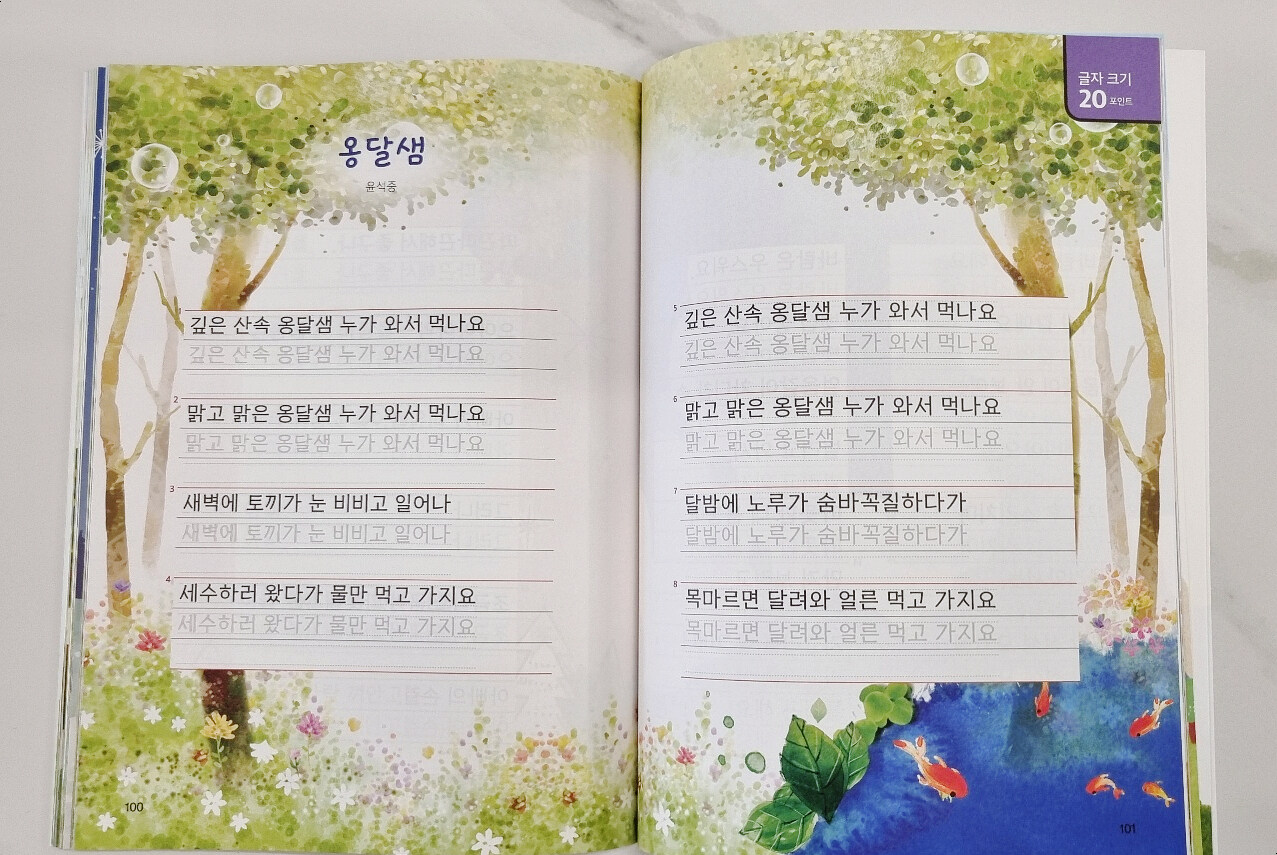 옹달샘
윤석중
깊은 산속 옹달샘 누가 와서 먹나요
깊은 산속 옹달샘 누가 와서 먹나요
2
맑고 맑은 옹달샘 누가 와서 먹나요
맑고 맑은 옹달샘 누가 와서 먹나요
3
새벽에 토끼가 눈 비비고 일어나
새벽에 토끼가 눈 비비고 일어나
4
세수하러 왔다가 물만 먹고 가지요
세수하러 왔다가 물만 먹고 가지요
100
글자 크기
20 포인트
5
깊은 산속 옹달샘 누가 와서 먹나요
깊은 산속 옹달샘 누가 와서 먹나요
6
맑고 맑은 옹달샘 누가 와서 먹나요
맑고 맑은 옹달샘 누가 와서 먹나요
7
달밤에 노루가 숨바꼭질하다가
달밤에 노루가 숨바꼭질하다가
8
목마르면 달려와 얼른 먹고 가지요
목마르면 달려와 얼른 먹고 가지요
101